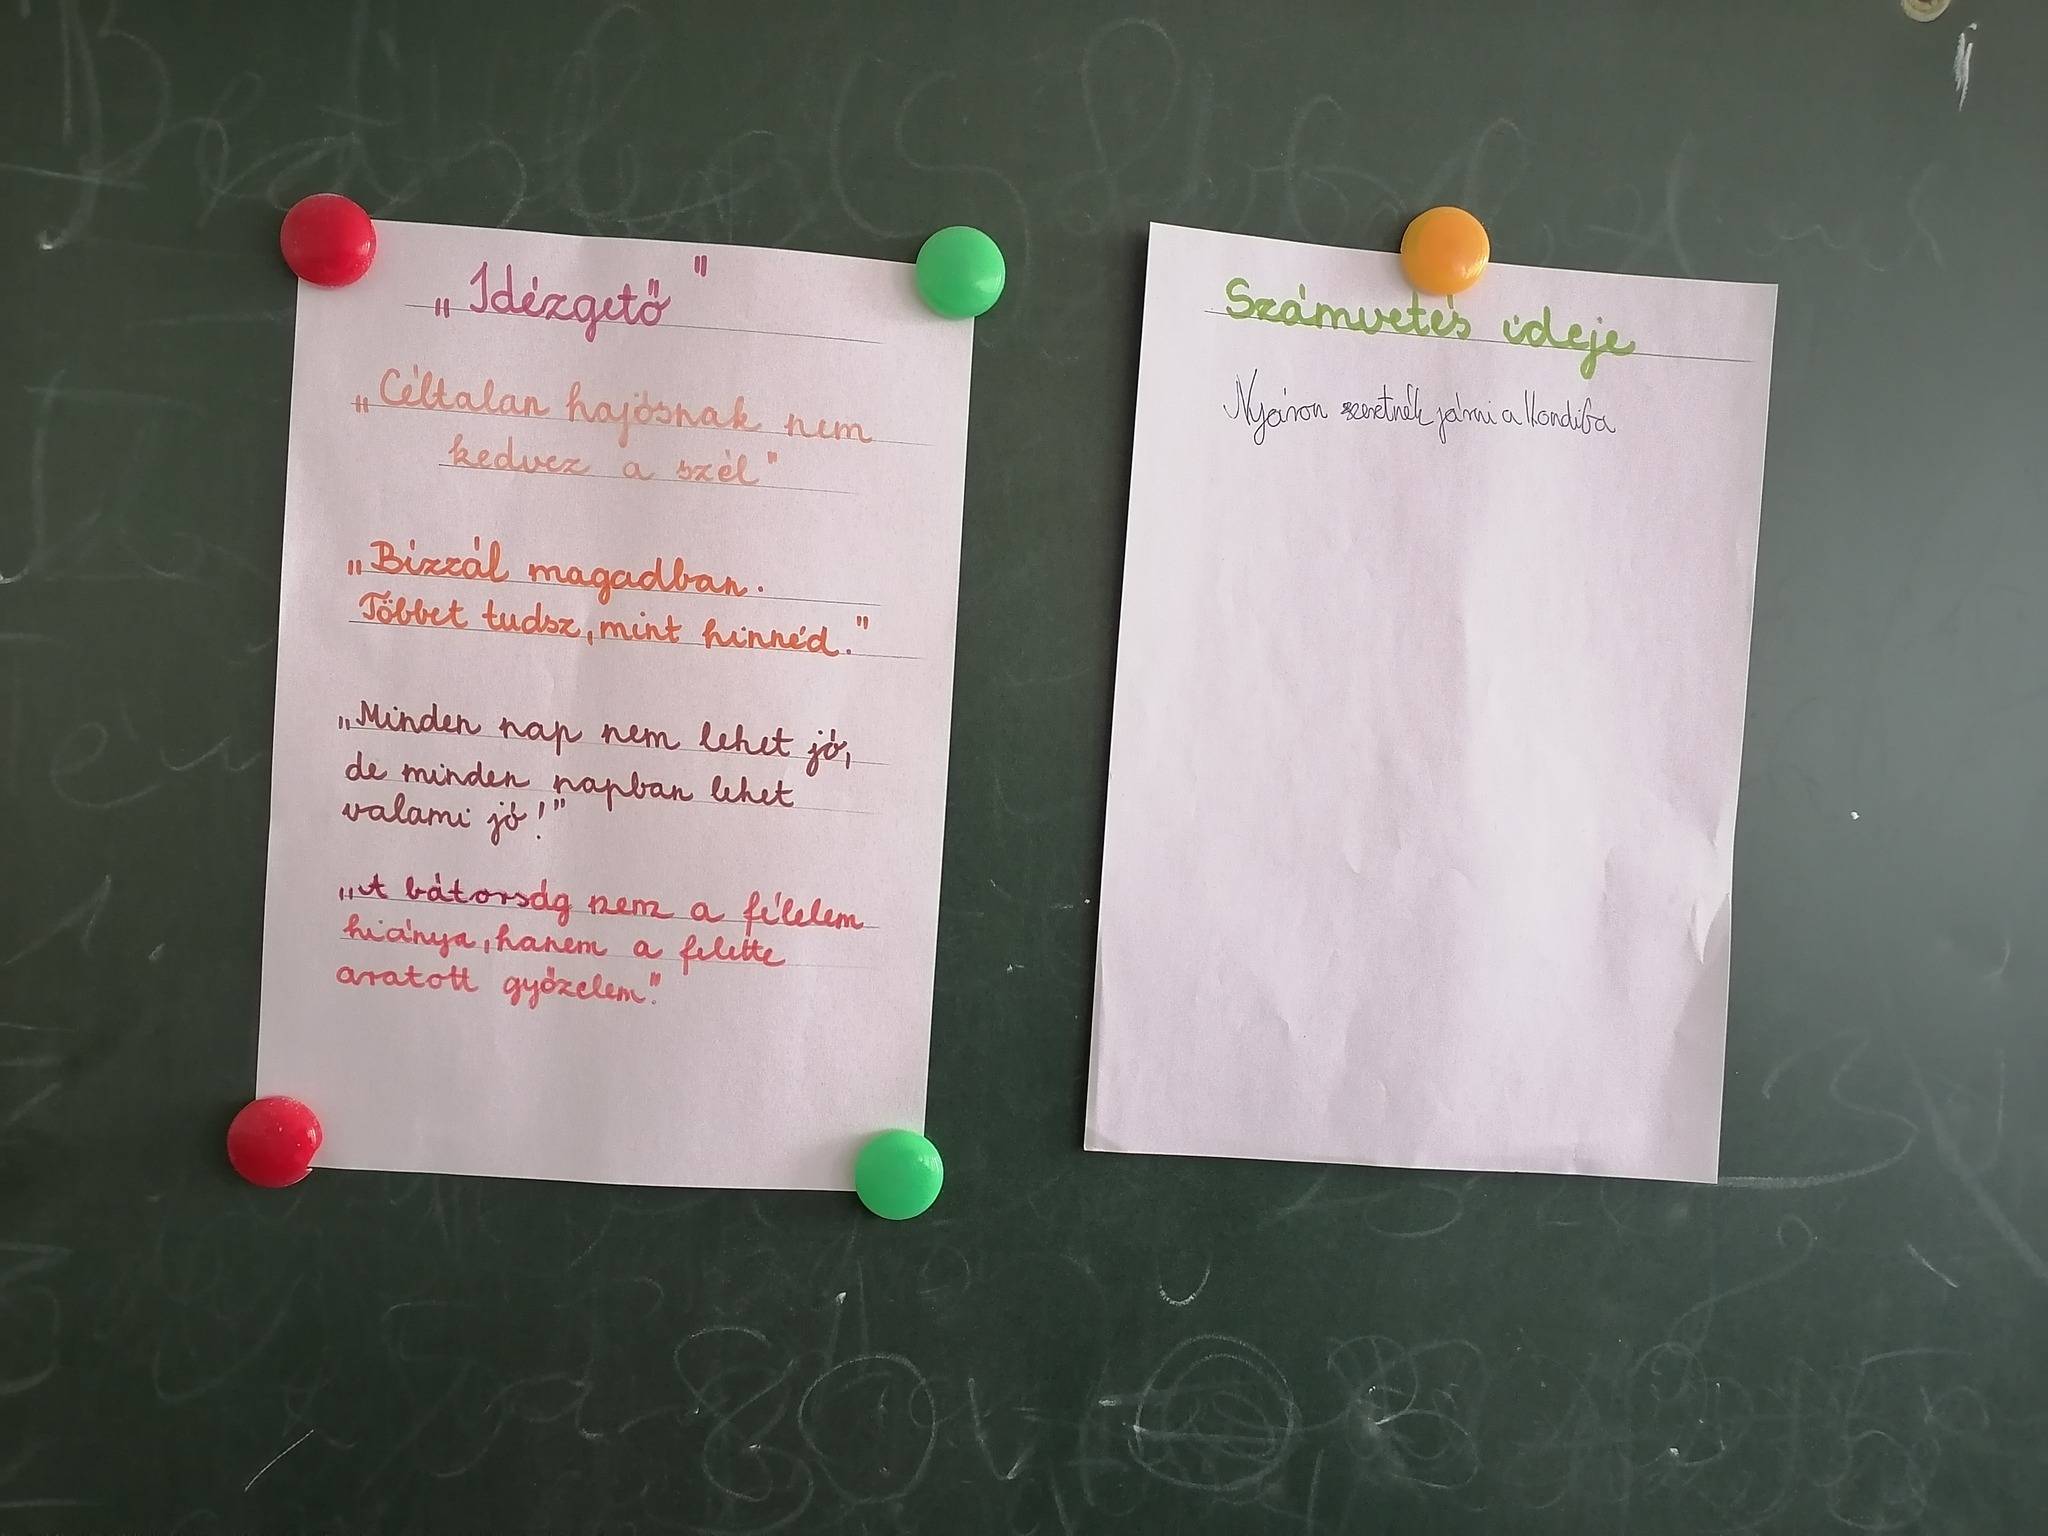 „Idézgető"
„Céltalan hajósnak nem
kedvez a szél"
„Bízzál magadban.
Többet tudsz, mint hinnéd."
„Minden nap nem lehet jó,
de minden napban lehet
valami jó!"
„A bátorság nem a félelem
hiánya, hanem a felette
aratott győzelem."
Számvetés ideje
Nyáron szeretnék járni a kondiba